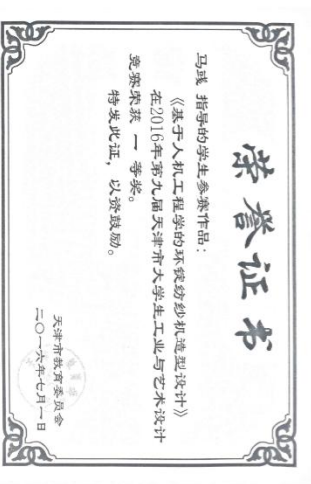 荣誉证书
马彧 指导的学生参赛作品：
《基于人机工程学的环锭纺纱机造型设计》
在2016年第九届天津市大学生工业与艺术设计
竞赛荣获 一 等奖。
特发此证，以资鼓励。
天津市教育委员会
二〇一六年七月一日